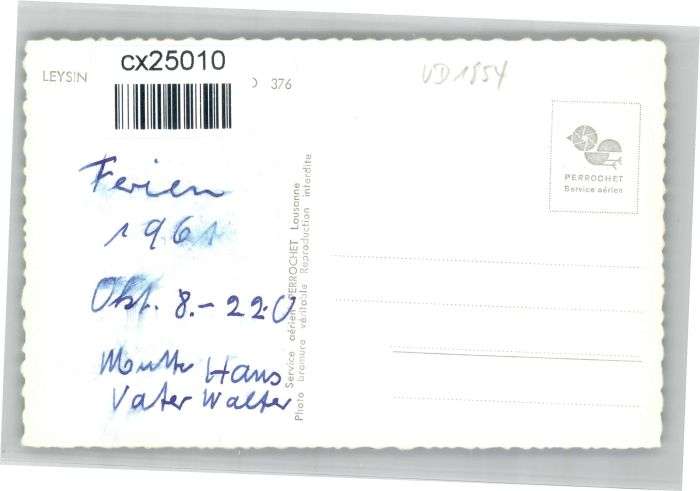 cx25010
LEYSIN
376
VD 1854
PERROCHET
Service aérien
Ferien
1961
Okt. 8.-22.
Mutter Hans
Vater Walter
Service aérien PERROCHET Lausanne
Photo bromure véritable Reproduction interdite